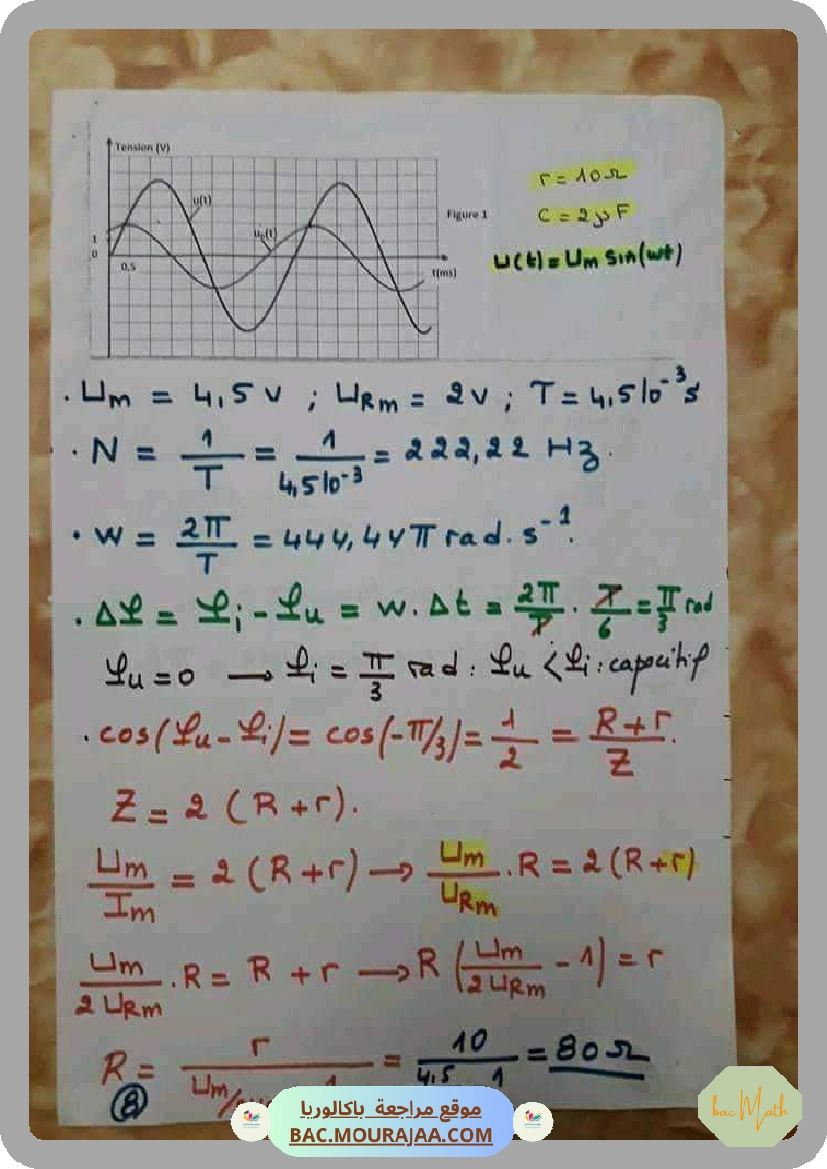 Tension (V)
u(t)
u_R(t)
1
0
0,5
t(ms)
Figure 1
r = 10 Ω
C = 2 µF
u(t) = Um sin(wt)
. Um = 4,5 v ; URm = 2v ; T = 4,5 10⁻³ s
. N = 1/T = 1/4,5 10⁻³ = 222,22 Hz.
. w = 2π/T = 444,44 π rad. s⁻¹.
. Δφ = φi - φu = w. Δt = 2π/T . T/6 = π/3 rad
φu = 0 → φi = π/3 rad : φu < φi : capacitif
. cos(φu - φi) = cos(-π/3) = 1/2 = R + r/Z.
Z = 2 (R + r).
Um/Im = 2 (R + r) → Um/URm . R = 2 (R + r)
Um/2 URm . R = R + r → R (Um/2 URm - 1) = r
R = r/Um/ = 10/4,5 1 = 80 Ω
8
موقع مراجعة باكالوريا
BAC.MOURAJAA.COM
bac Math